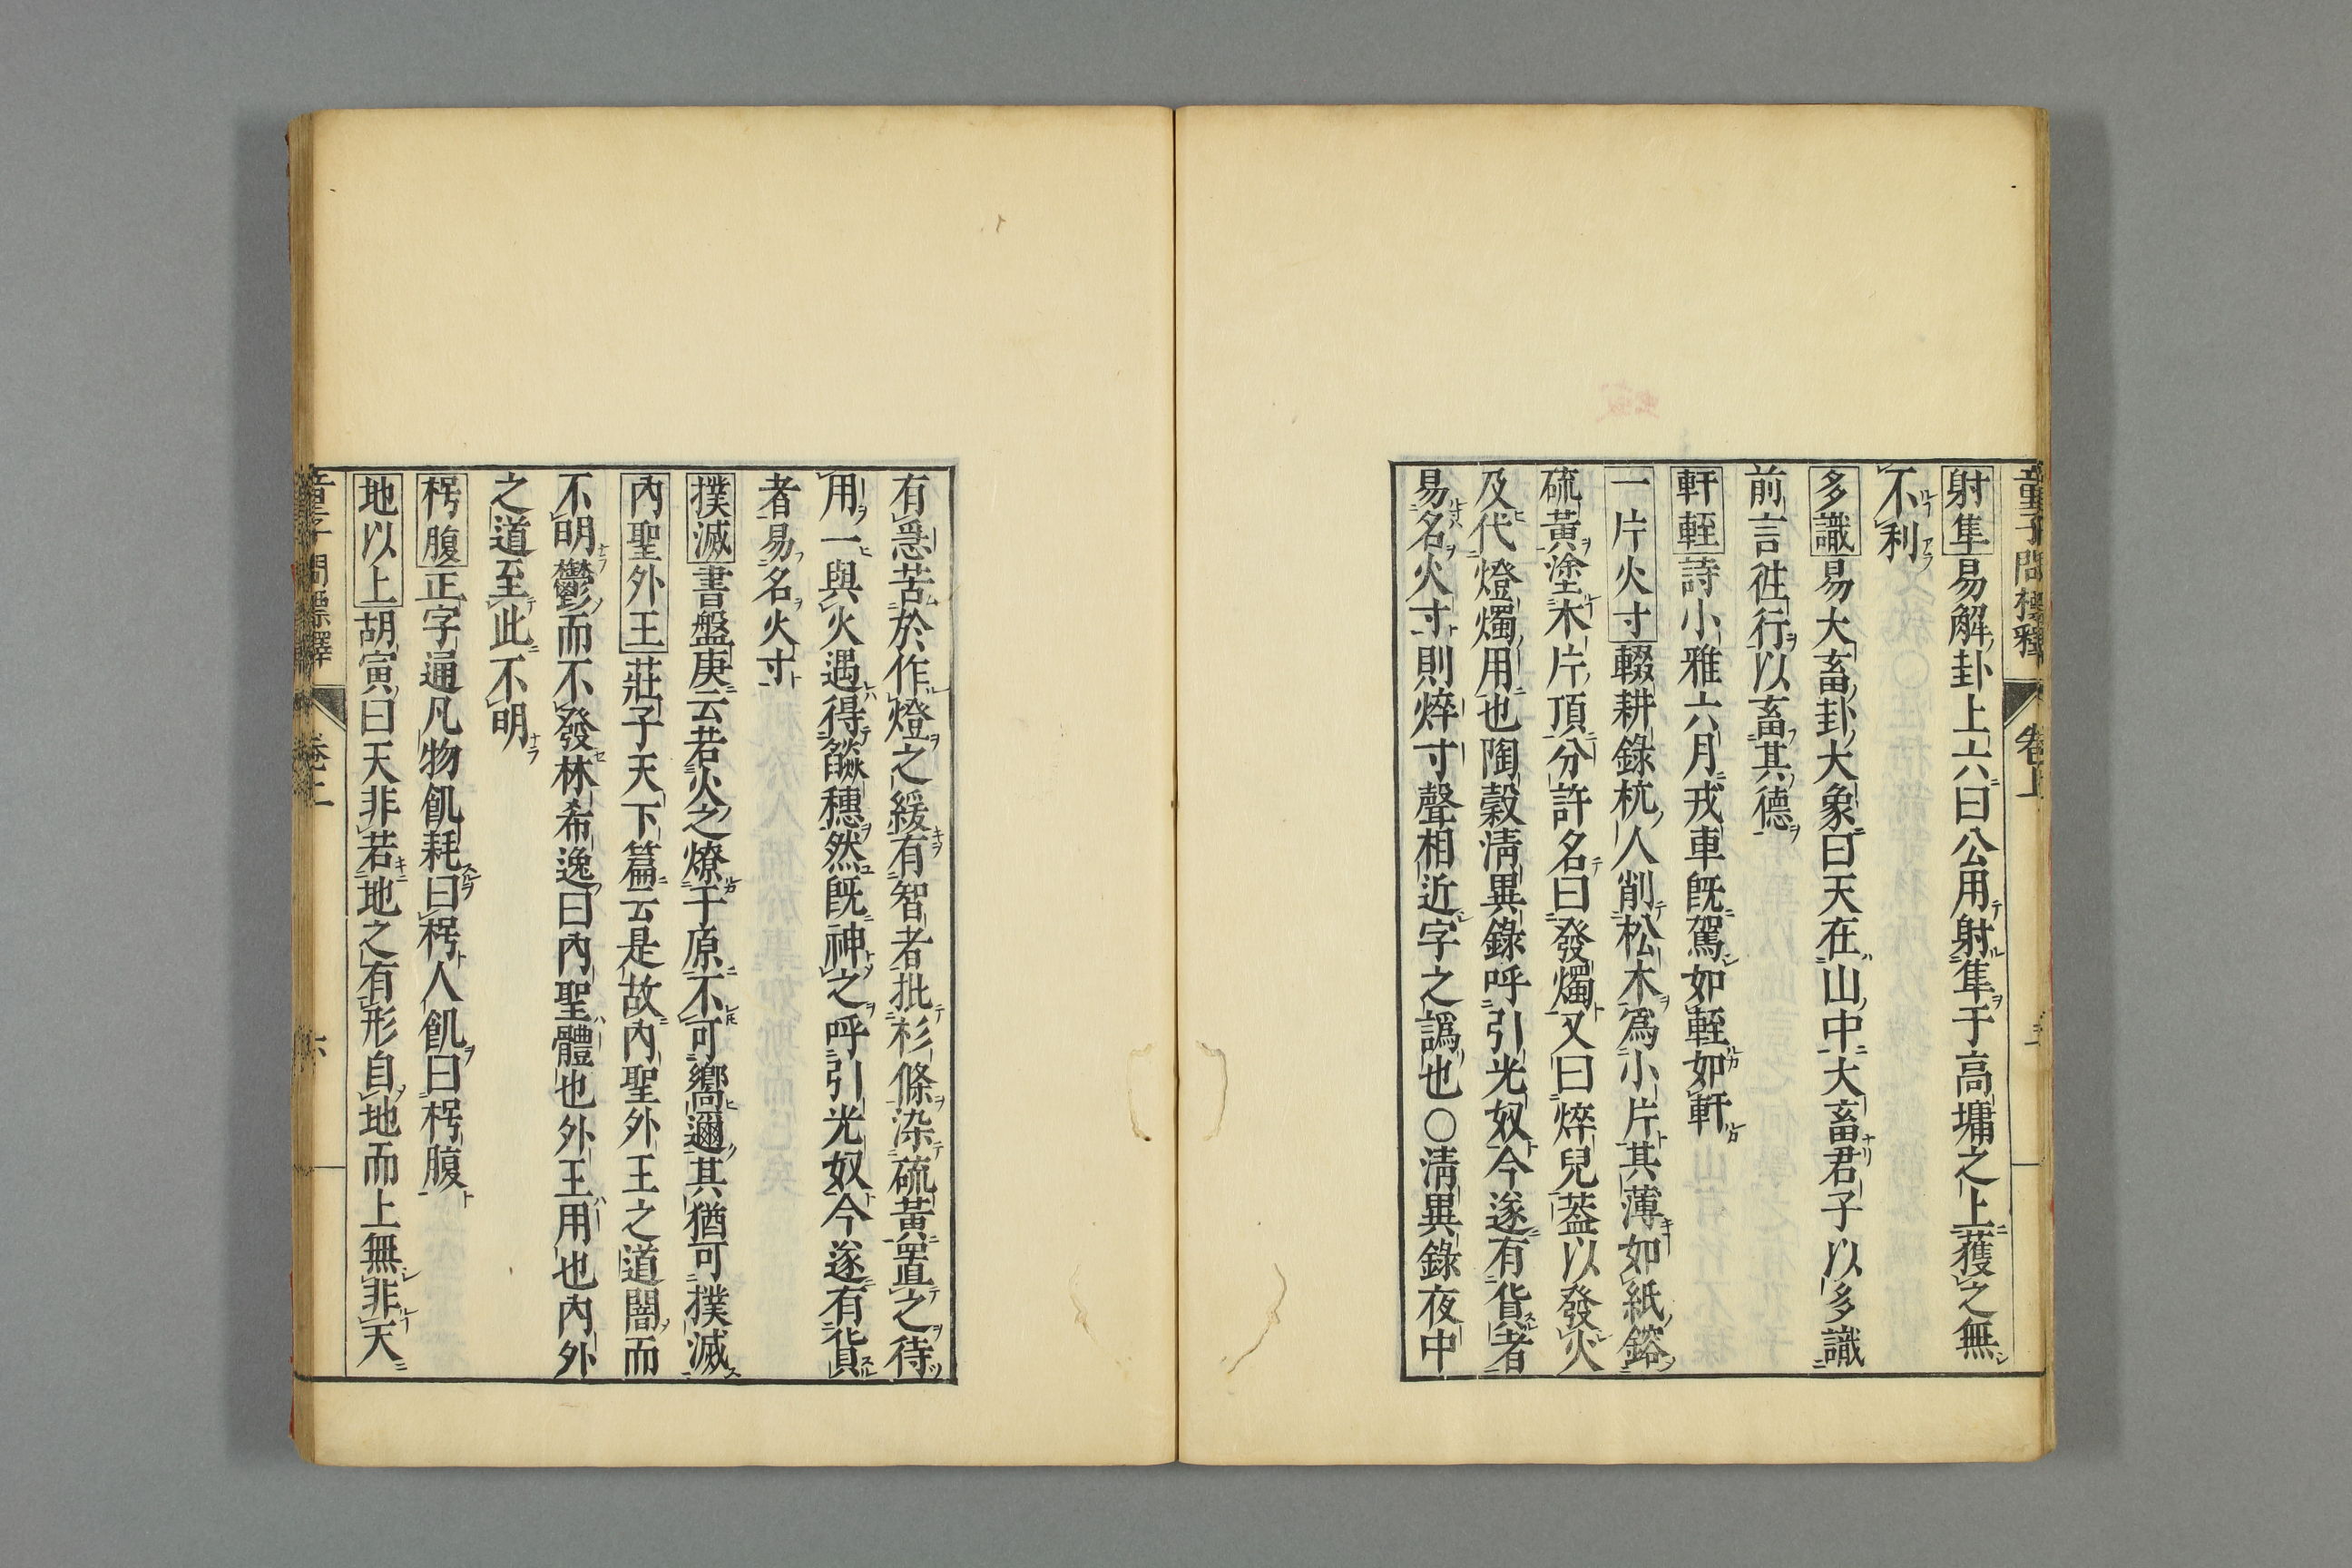 童子問標釋 卷上
射隼易解卦上六曰公用射隼于高墉之上獲之無
不利
多識易大畜卦大象曰天在山中大畜君子以多識
前言往行以畜其德
軒輊詩小雅六月戎車旣駕如輊如軒
一片火寸輟耕錄杭人削松木爲小片其薄如紙鎔
硫黃塗木片頂分許名曰發燭又曰焠兒蓋以發火
及代燈燭用也陶穀淸異錄呼引光奴今遂有貨者
易名火寸則焠寸聲相近字之譌也○淸異錄夜中
有急苦於作燈之緩有智者批杉條染硫黃置之待
用一與火遇得燄穗然旣神之呼引光奴今遂有貨
者易名火寸
撲滅書盤庚云若火之燎于原不可嚮邇其猶可撲滅
內聖外王莊子天下篇云是故內聖外王之道闇而
不明鬱而不發林希逸曰內聖體也外王用也內外
之道至此不明
枵腹正字通凡物飢耗曰枵人飢曰枵腹
地以上胡寅曰天非若地之有形自地而上無非天
童子問標釋